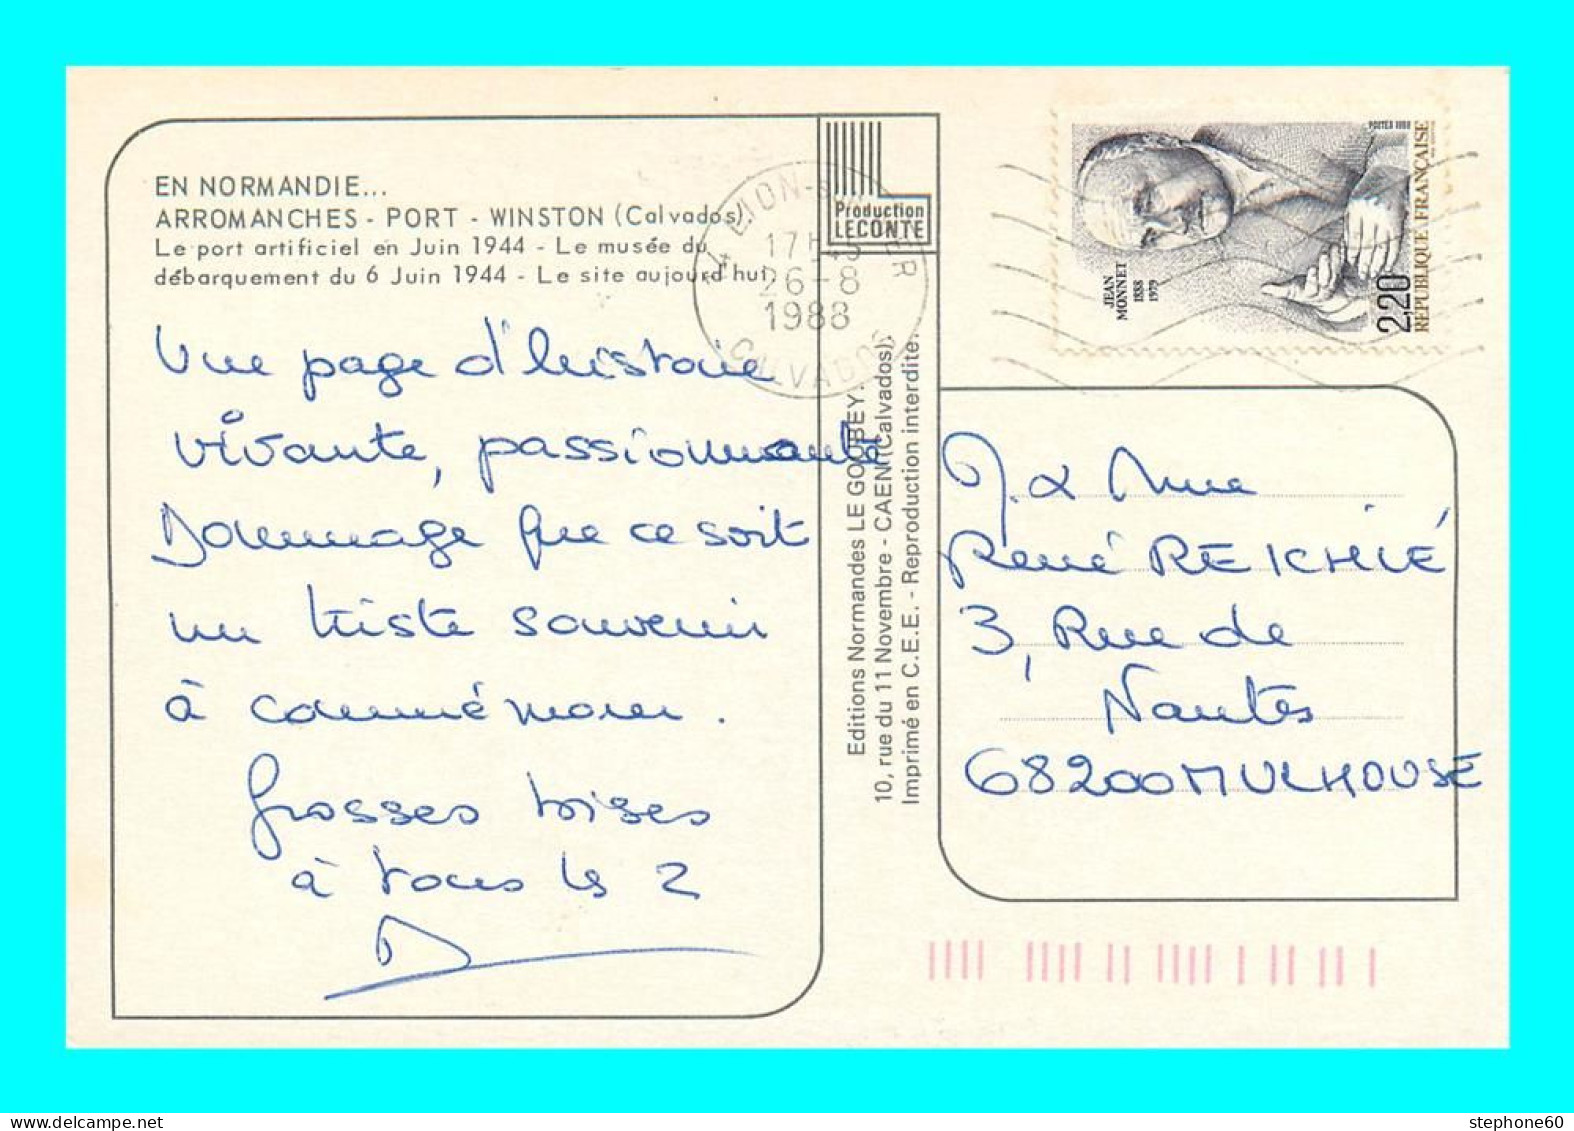 EN NORMANDIE...
ARROMANCHES - PORT - WINSTON (Calvados)
Le port artificiel en Juin 1944 - Le musée du
débarquement du 6 Juin 1944 - Le site aujourd'hui
Une page d'histoire
vivante, passionnante
Dommage que ce soit
un triste souvenir
à commémorer.
Grosses bises
à tous les 2
Production
LECONTE
14 LION-S MER
17H 45
26-8
1988
CALVADOS
Editions Normandes LE GOUBEY.
10, rue du 11 Novembre - CAEN (Calvados).
Imprimé en C.E.E. - Reproduction interdite.
POSTES 1988
RÉPUBLIQUE FRANÇAISE
2,20
JEAN
MONNET
1888
1979
M. & Mme
René REICHLÉ
3, Rue de
Nantes
68200 MULHOUSE
stephone60